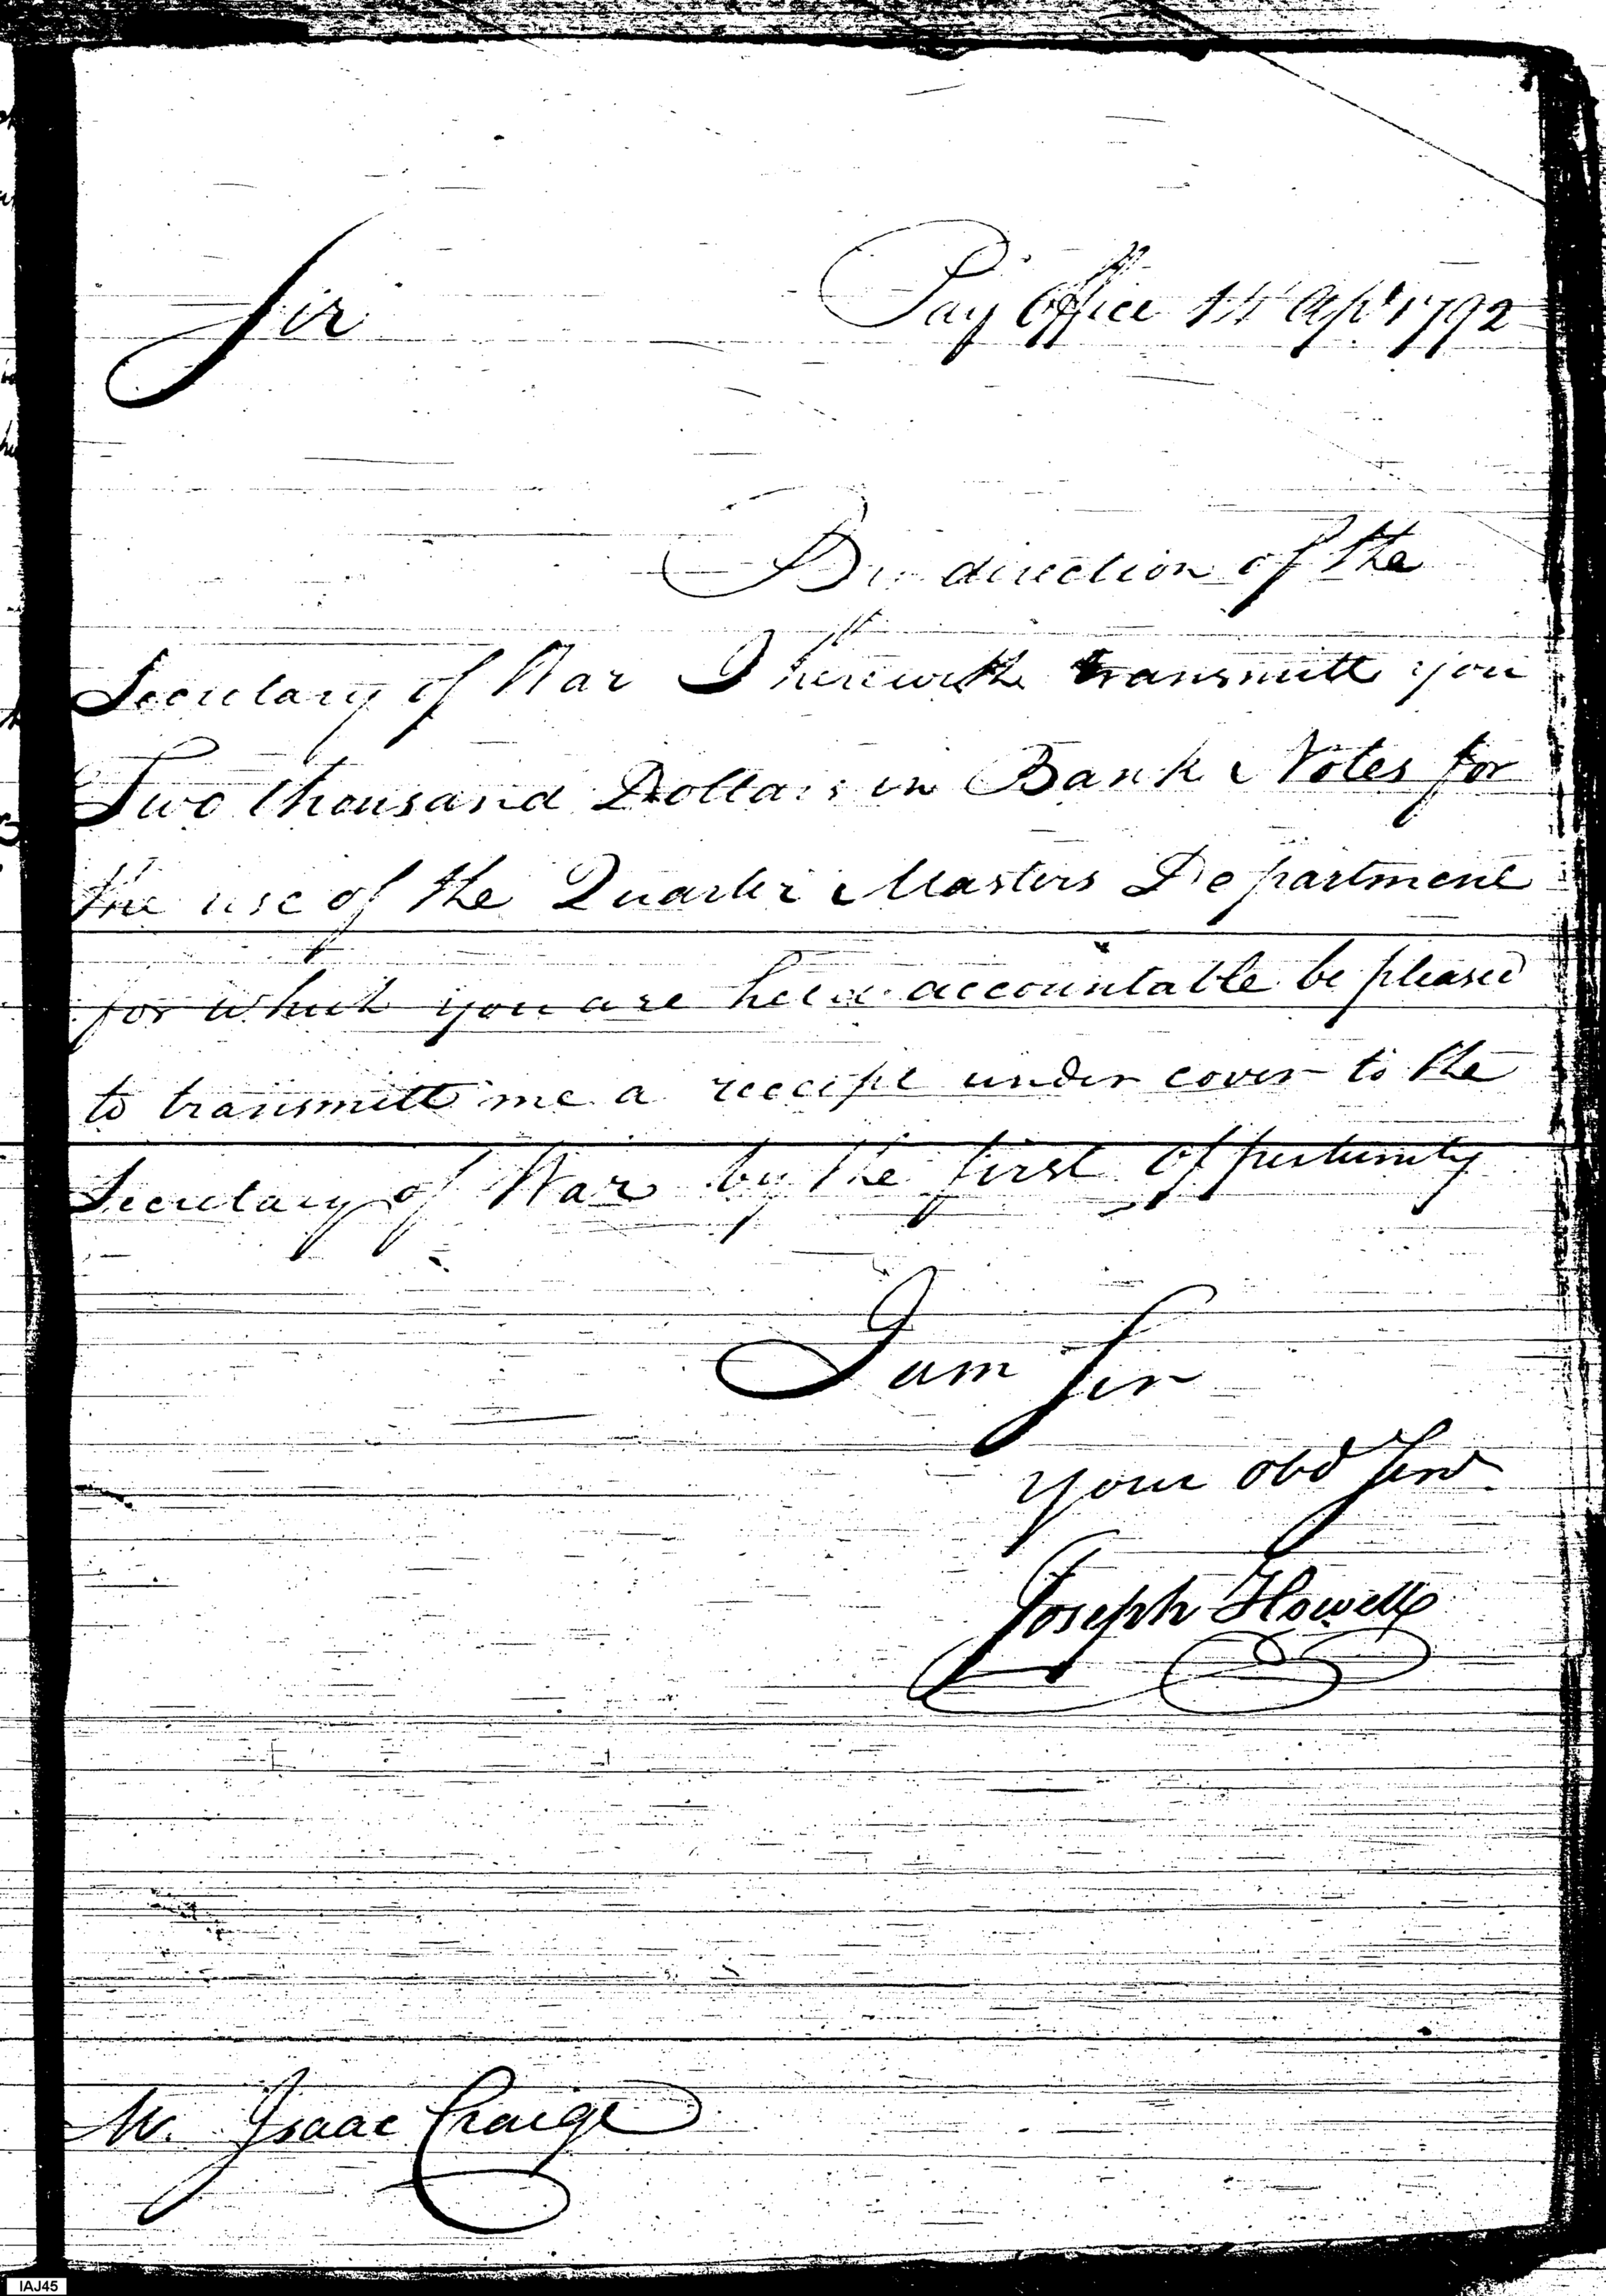 Sir
Pay Office 14 Apl 1792
By direction of the
Secretary of War I herewith transmitt you
Two thousand Dollars in Bank Notes for
the use of the Quarter Masters Department
for which you are held accountable be pleased
to transmitt me a receipt under cover to the
Secretary of War by the first Oppertunity
I am Sir
your obd Servt
Joseph Howell
Mr. Isaac Craige
IAJ45